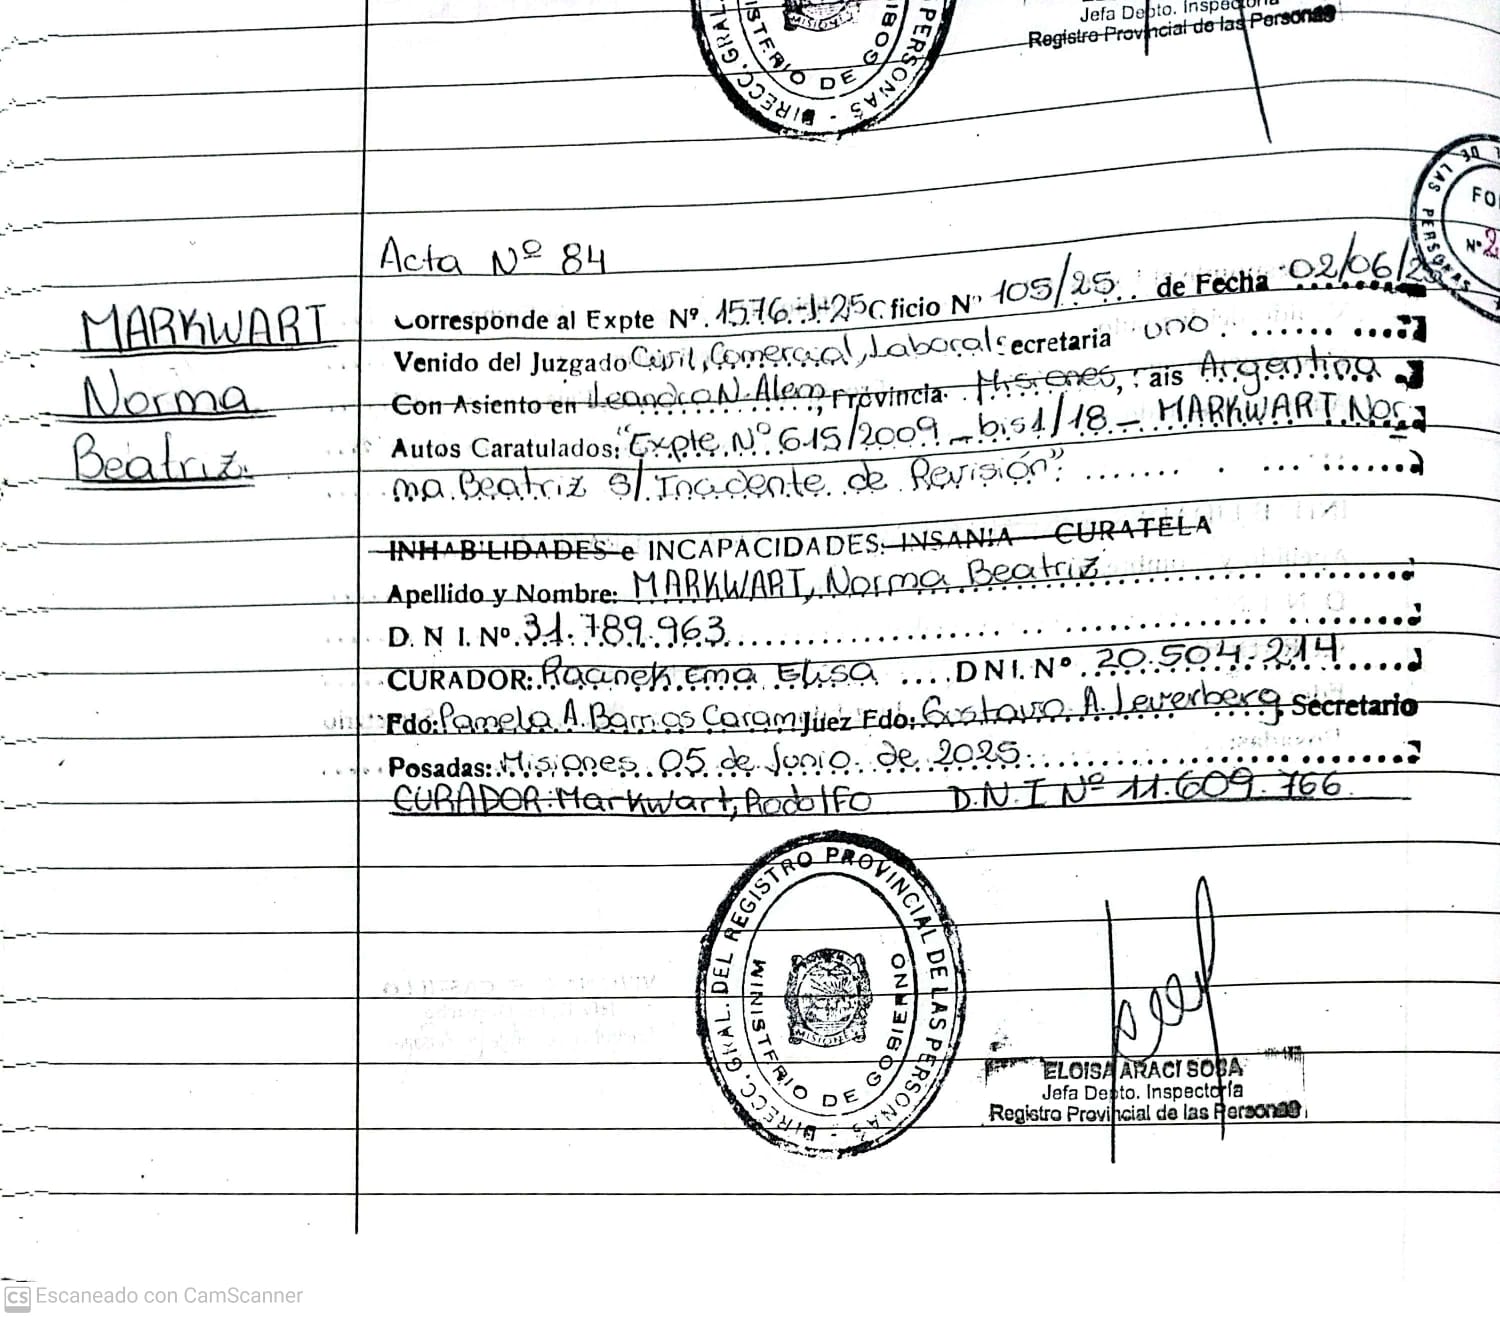 Jefa Depto. Inspectoria
Registro Provincial de las Personas
DIRECC. GRAL.
MINISTERIO DE GOBIERNO
PERSONAS
DE LAS PERSONAS
FO
Nº 2
Acta Nº 84
MARKWART
Norma
Beatriz.
Corresponde al Expte Nº. 1576-J-25 Oficio Nº 105/25 de Fecha 02/06/2
Venido del Juzgado Civil, Comercial, Laboral Secretaria uno
Con Asiento en Leandro N. Alem, Provincia Misiones, Pais Argentina
Autos Caratulados: "Expte. Nº 615/2009 - bis1/18 - MARKWART Nor-
ma Beatriz S/ Incidente de Revisión".
INHABILIDADES e INCAPACIDADES: INSANIA - CURATELA
Apellido y Nombre: MARKWART, Norma Beatriz
D. N I. Nº 31.789.963
CURADOR: Racinek Ema Elisa DNI. Nº 20.504.214
Fdo: Pamela A. Barrios Caram Juez Fdo: Gustavo A. Leverberg Secretario
Posadas: Misiones 05 de Junio de 2025
CURADOR: Markwart, Rodolfo D.N.I Nº 11.609.766
DIRECC. GRAL. DEL REGISTRO PROVINCIAL DE LAS PERSONAS
MINISTERIO DE GOBIERNO
MISIONES
ELOISA ARACI SOSA
Jefa Depto. Inspectoría
Registro Provincial de las Personas
CS Escaneado con CamScanner